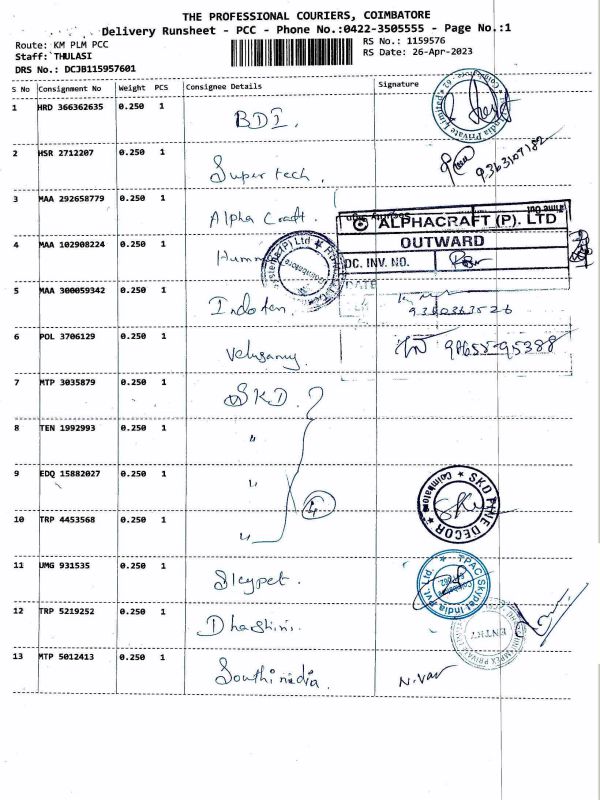 THE PROFESSIONAL COURIERS, COIMBATORE
Delivery Runsheet - PCC - Phone No.:0422-3505555 - Page No.:1
Route: KM PLM PCC RS No.: 1159576
Staff: THULASI RS Date: 26-Apr-2023
DRS No.: DCJB115957601
S No Consignment No Weight PCS Consignee Details Signature
1 HRD 366362635 0.250 1 BDI.
2 HSR 2712207 0.250 1 Super tech. 9363107182
3 MAA 292658779 0.250 1 Alpha Craft.
ALPHACRAFT (P). LTD
OUTWARD
DC. INV. NO.
DATE
4 MAA 102908224 0.250 1
5 MAA 300059342 0.250 1 9360363526
6 POL 3706129 0.250 1 Velusamy. 98655-95388
7 MTP 3035879 0.250 1 SKD.
8 TEN 1992993 0.250 1 "
9 EDQ 15882027 0.250 1 "
4
SKD FINE DECOR Coimbatore
10 TRP 4453568 0.250 1 "
11 UMG 931535 0.250 1 Skypet.
TPAC Skypet India Pvt. Ltd.
12 TRP 5219252 0.250 1 Dharshini.
ENTRY
13 MTP 5012413 0.250 1 South india.